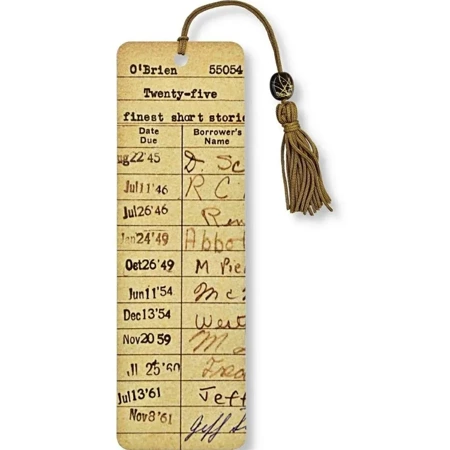 O'Brien 55054
Twenty-five
finest short storie
Date Due Borrower's Name
ug 22'45 D. Sc
Jul 11'46 R C
Jul 26'46 Ren
Jan 24'49 Abbo
Oct 26'49 M Pie
Jun 11'54 McN
Dec 13'54 West
Nov 20 59 M
25'60 Frea
Jul 13'61 Jeff
Nov 8'61 Jeff S